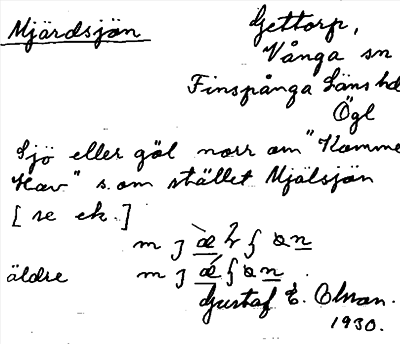 Mjärdsjön Gettorp,
Vånga sn
Finspånga Läns hd
Ögl
Sjö eller göl norr om "Komme
Hav" s.om stället Mjälsjön
[se ek.]
äldre
Gustaf E. Olsson.
1930.